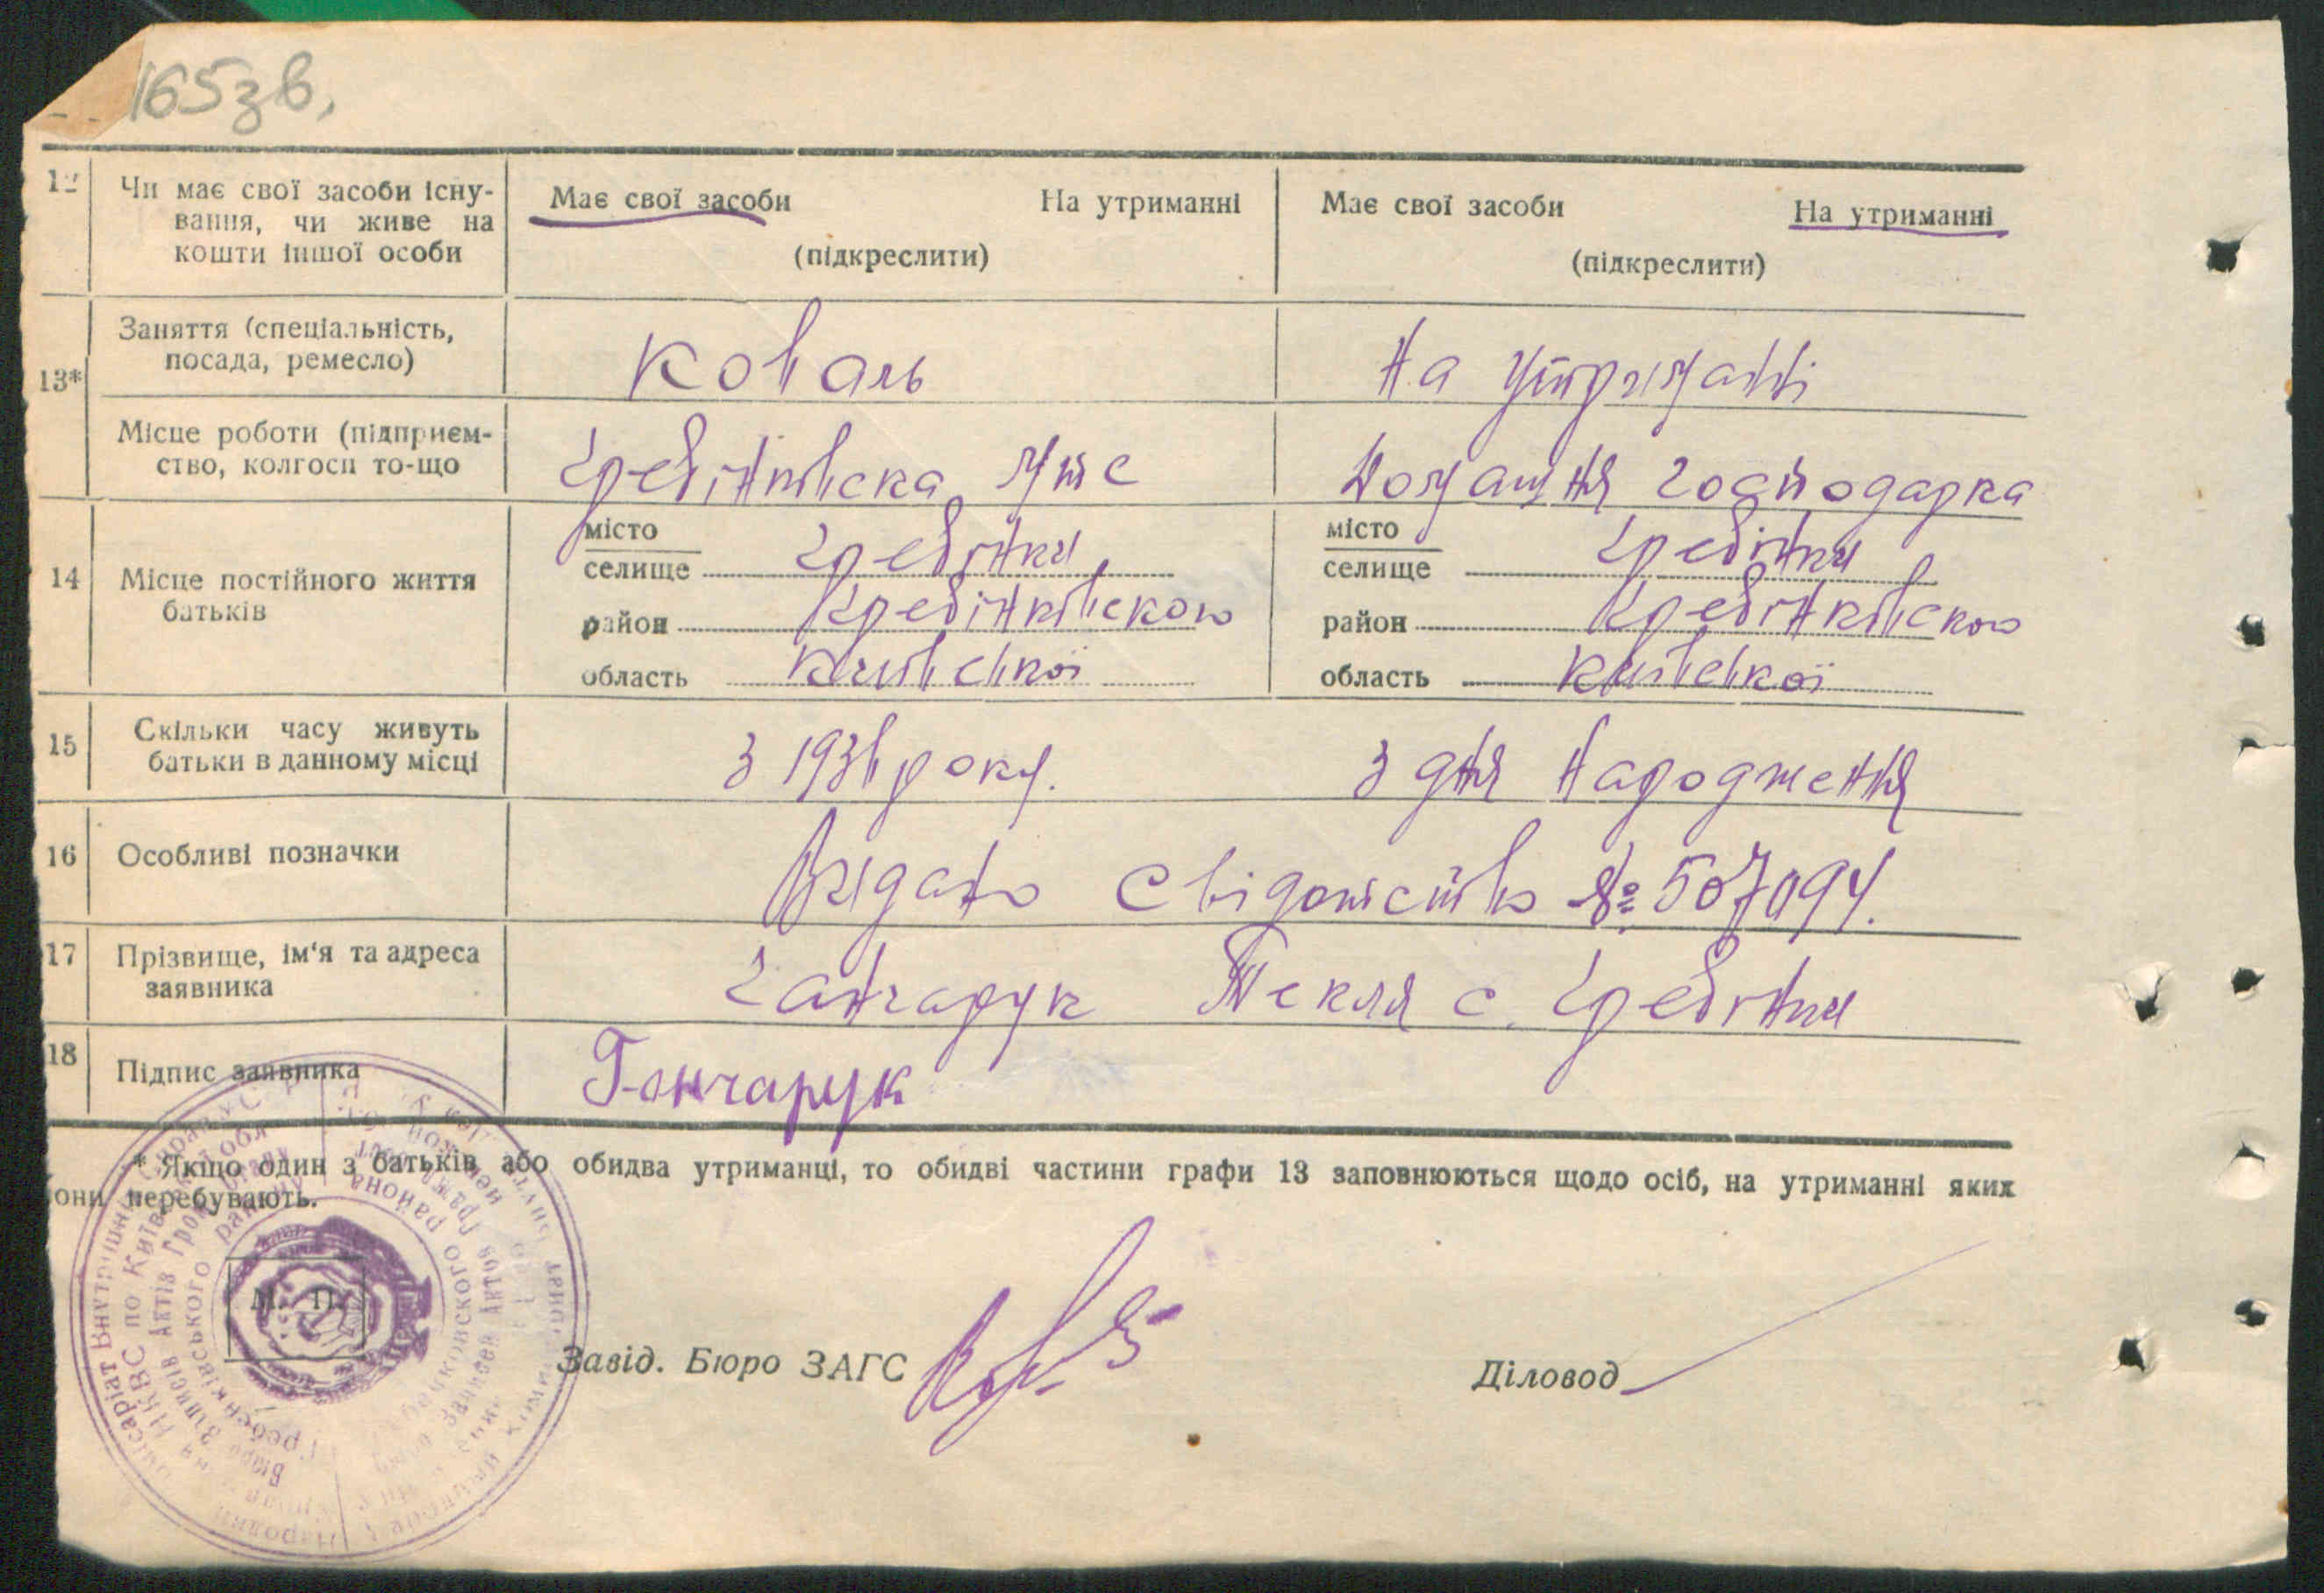 165зв.
12 Чи має свої засоби існу-
вання, чи живе на
кошти іншої особи
Має свої засоби На утриманні
(підкреслити)
Має свої засоби На утриманні
(підкреслити)
13*
Заняття (спеціальність,
посада, ремесло)
Коваль
На утриманні
Місце роботи (підприєм-
ство, колгосп то-що
Гребінківска мтс
Домашня господарка
14 Місце постійного життя
батьків
місто
селище Гребінки
район Гребінківского
область Київської
місто
селище Гребінки
район Гребінківского
область Київської
15 Скільки часу живуть
батьки в данному місці
З 193 року.
З дня народження
16 Особливі позначки
Видано свідоцтво № 507094.
17 Прізвище, ім'я та адреса
заявника
Ганчарук Текля с. Гребінки
18 Підпис заявника
Гончарук
* Якщо один з батьків або обидва утриманці, то обидві частини графи 13 заповнюються щодо осіб, на утриманні яких
они перебувають.
М. П.
Завід. Бюро ЗАГС
Діловод